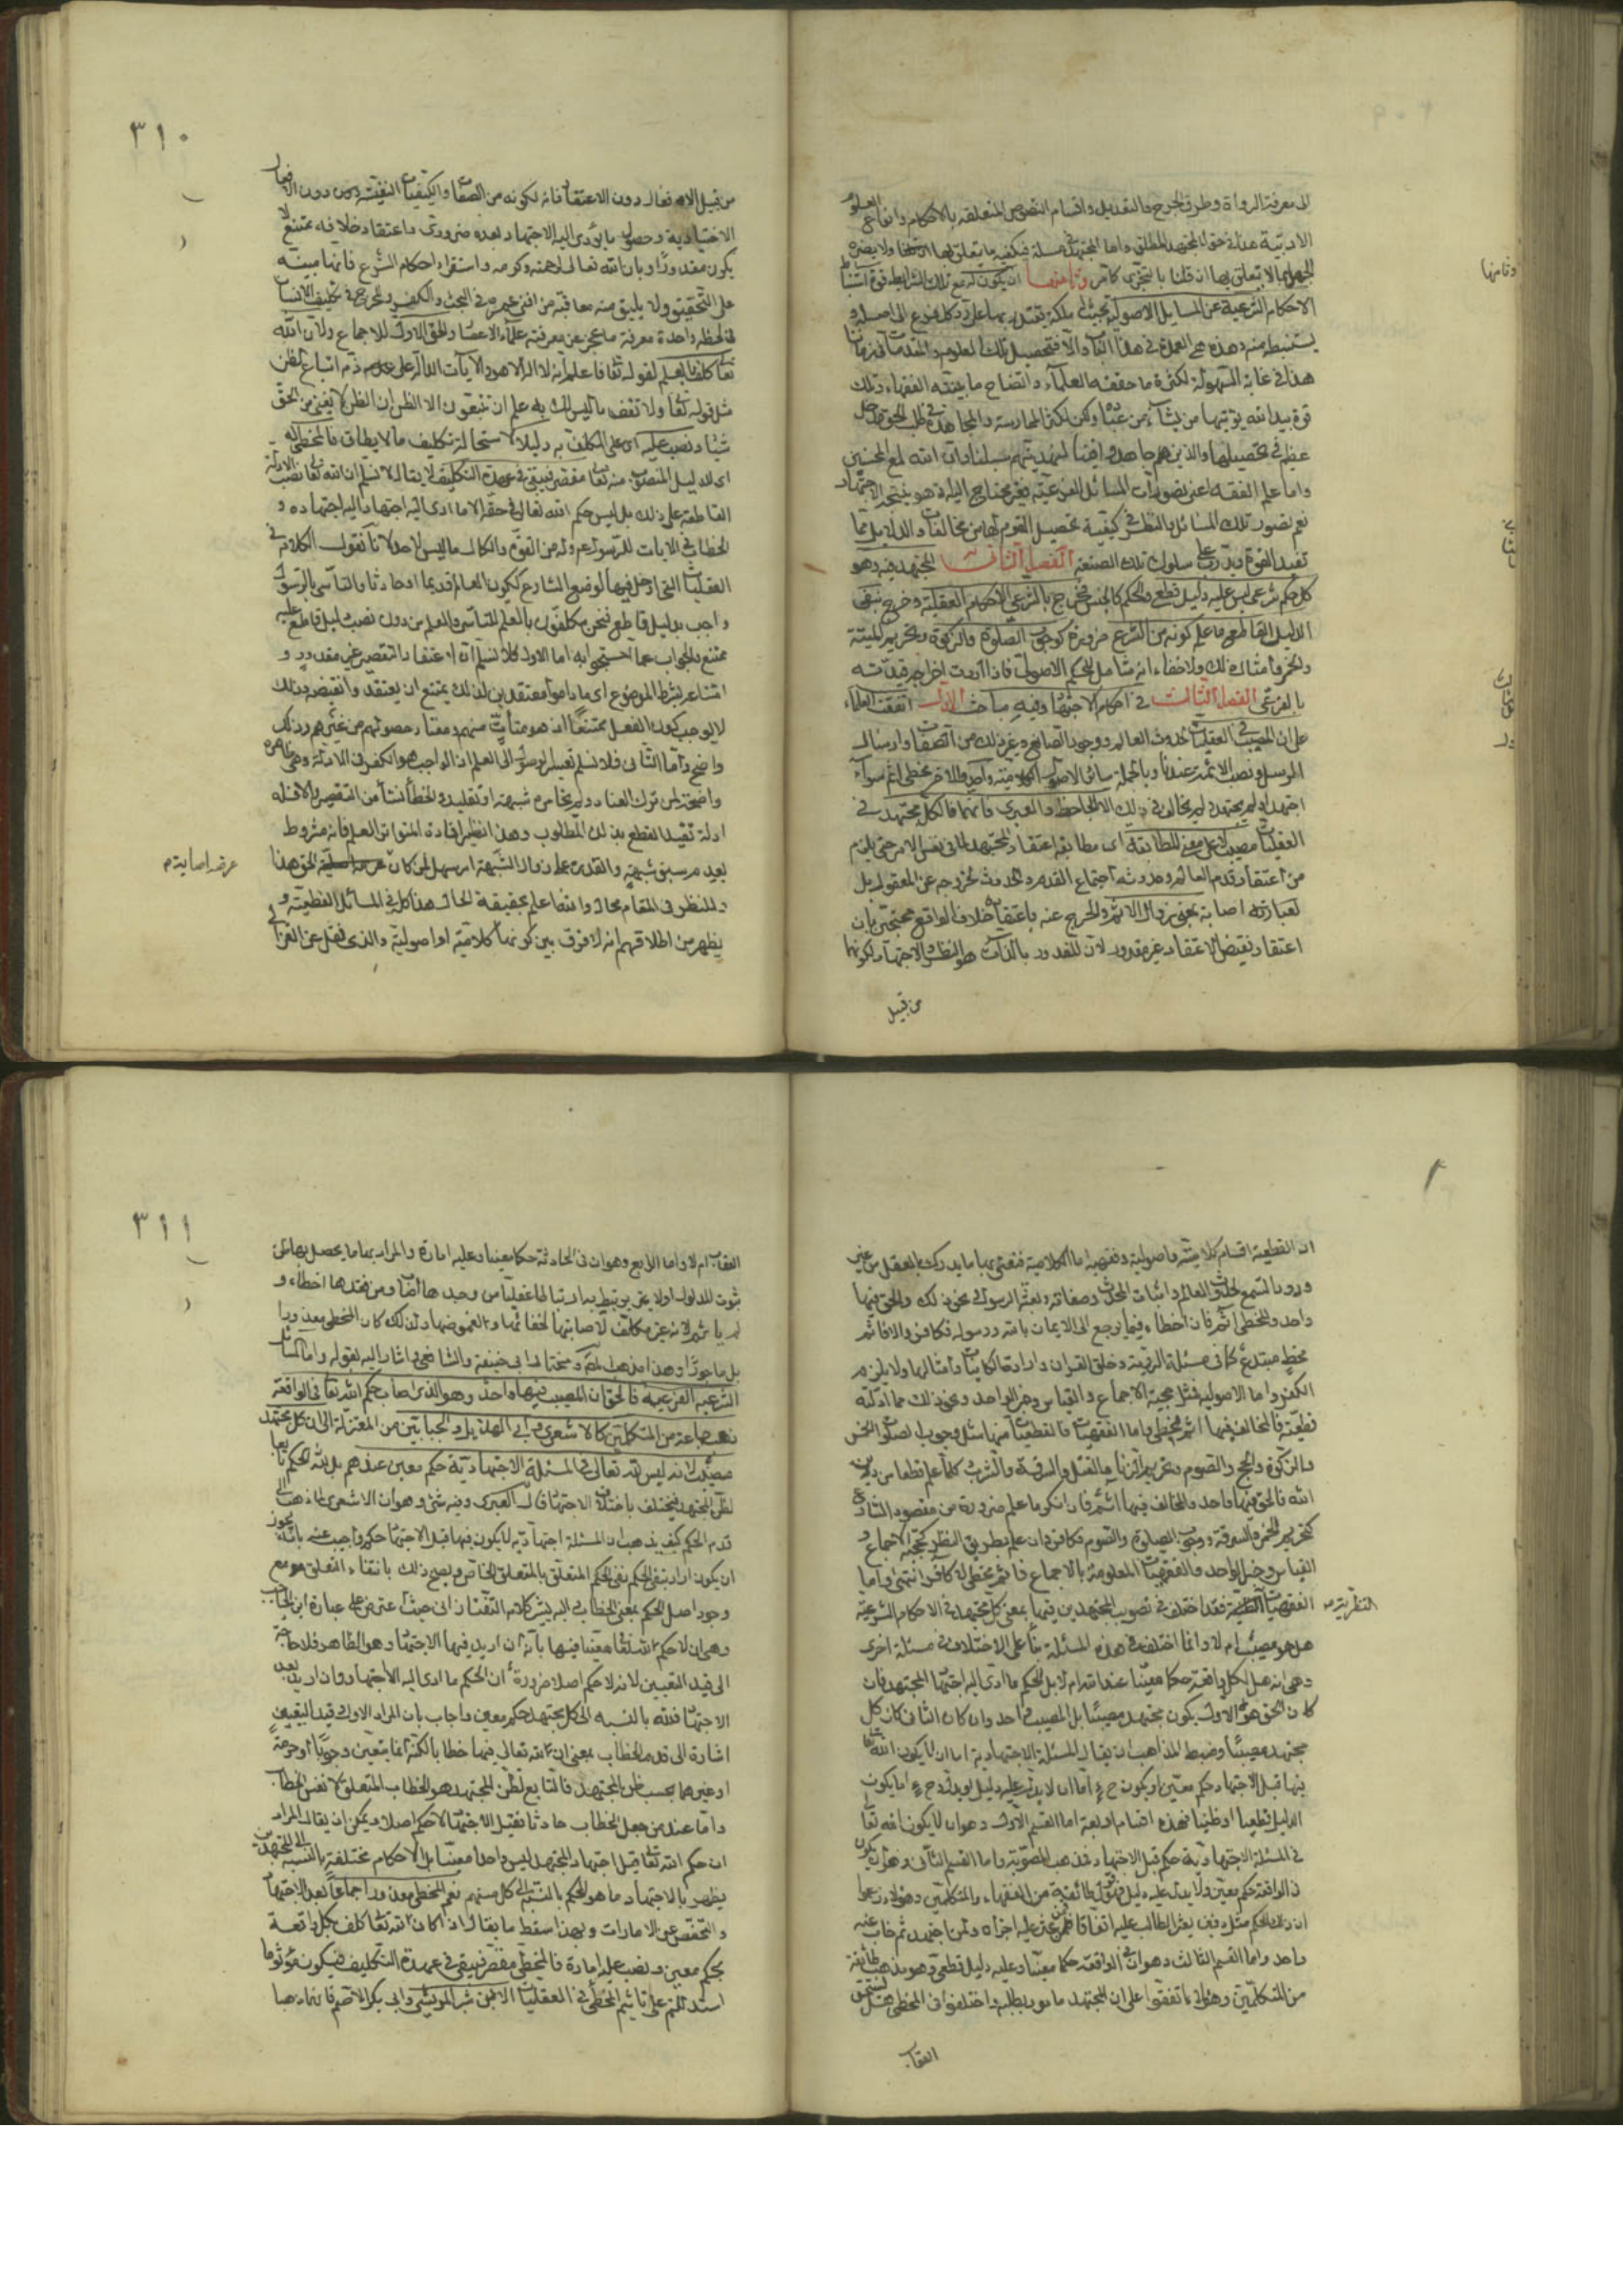 الى معرفة الرواة وطرق الجرح والتعديل واقسام النصوص المتعلقة بالاحكام وانواع العلوم
الادبية هذا في حق المجتهد المطلق واما المجتهد في مسئلة فيكفيه ما يتعلق بها ولا يضره
الجهل بما لا يتعلق بها ان قلنا بالتجزى كما مر وثامنها ان يكون له مع تلك الشرايط قوة استنباط
الاحكام الشرعية عن المسايل الاصولية بحيث ملكة يقتدر بها على رد كل فرع الى اصله و
يستنبطه منه وهذه هي العمدة في هذا الباب والا فتحصيل تلك العلوم والمقدمات في زماننا
هذا في غاية السهولة لكثرة ما حققه العلماء واتضاح ما بينته الفقهاء وتلك
قوة بيد الله يؤتيها من يشاء من عباده ولكن لكثرة الممارسة والمجاهدة في طلب الحق مدخل
عظيم في تحصيلها والذين جاهدوا فينا لنهدينهم سبلنا وان الله لمع المحسنين
واما علم الفقه اعنى تصورات المسائل الفرعية فغير محتاج اليه اذ هو نتيجة الاجتهاد
نعم تصور تلك المسائل بالنظر في كيفية تحصيل القوم لها من مخالفات والدلايل مما
تفيد القوة ويدرب على سلوك تلك الصنعة الفصل الثاني المجتهد فيه وهو
كل حكم شرعى ليس عليه دليل قطعى والحكم كالجنس فخرج بالشرعى الاحكام العقلية وخرج بنفى
الدليل القاطع ما علم كونه من الشرع ضرورة كوجوب الصلوة والزكوة وتحريم الميتة
والخمر وامثال ذلك ولا خفاء انه شامل للحكم الاصولى فاذا اردت اخراجه قيدته
بالفرعى الفصل الثالث في احكام الاجتهاد وفيه مباحث الاول اتفقت العلماء
على ان المصيب في العقليات كحدوث العالم ووجود الصانع وغير ذلك من الصفات وارسال
الرسل ونصب الائمة عندنا وبالجملة سائر الاصول الكلامية واحد والاخر مخطئ اثم سواء
اجتهد او لم يجتهد ولم يخالف في ذلك الا الجاحظ والعنبرى فانهما قالا كل مجتهد في
العقليات مصيب لا على معنى المطابقة اى مطابقة اعتقاد المجتهد لما في نفس الامر حتى يلزم
من اعتقاد قدم العالم وحدوثه اجتماع القدم والحدوث لخروجه عن المعقول بل
لعبارته اصابة بمعنى زوال الاثم والحرج عنه باعتقاده خلاف الواقع محتجين بان
اعتقاد نقيض الاعتقاد غير مقدور لان المقدور بالذات هو النظر والاجتهاد لكونها
من قبيل
وثامنها
٣١٠
من قبيل الافعال دون الاعتقاد فانه لكونه من الصفات والكيفيات النفسية دون الافعال
الاختيارية وحصول ما يؤدى اليه الاجتهاد بعده ضرورى واعتقاد خلافه ممتنع لا
يكون مقدورا وبان الله تعالى لرحمته وكرمه واستقراء احكام الشرع فانها مبينة
على التحقيق ولا يليق منه معاقبة من افنى عمره في البحث والكفر والحرج في تكليف الانسان
في لحظة واحدة معرفة ما عجز عن معرفته علماء الاعصار والحق الاول للاجماع ولان الله
تعالى كلف بالعلم لقوله تعالى فاعلم انه لا اله الا هو والايات الدالة على ذم اتباع الظن
مثل قوله تعالى ولا تقف ما ليس لك به علم ان تتبعون الا الظن ان الظن لا يغنى من الحق
شيئا ونصب عليه اى على المكلف به دليلا لاستحالة تكليف ما لا يطاق فالمخطئ له
اى للدليل المنصوب منه تعالى مقصر فيبقى في عهدة التكليف لا يقال لا نسلم ان الله تعالى نصب الادلة
القاطعة على ذلك بل ليس حكم الله تعالى في حقه الا ما ادى اليه اجتهاده و
الخطاب في الايات للرسول ولمن القوة والكمال ما ليس لاحد لانا نقول الكلام في
العقليات التى لا دخل فيها لوضع الشارع ككون العالم قديما او حادثا والتأسى بالرسول
واجب بدليل قاطع فنحن مكلفون بالعلم للتأسى والعلم من دون نصب دليل قاطع عليه
ممتنع والجواب عما احتجوا به اما الاول فلا نسلم ان اعتقاد النقيض غير مقدور و
امتناعه بشرط الموضوع اى ما داموا معتقدين لذلك يمتنع ان يعتقد وانقيضه وذلك
لا يوجب كون الفعل ممتنعا اذ هو متأت منهم ومعتاد حصولهم من غيرهم وذلك
واضح واما الثانى فلا نسلم تعسر الوصول الى العلم اذ الواجب هو الفكر في الادلة وهى ظاهرة
واضحة لمن ترك العناد ولم يخامره شبهة او تقليد والخطأ نشأ من التقصير والا فله
ادلة تفيد القطع بذلك المطلوب وهذا نظير افادة المتواتر العلم فانه مشروط
بعدم سبق شبهة والقدرة على زوال الشبهة امر سهل لمن كان غرضه اصابة الحق هذا
وللنظر في المقام مجال والله اعلم بحقيقة الحال هذا كله في المسائل القطعية و
يظهر من اطلاقهم انه لا فرق بين كونها كلامية او اصولية والذى نقل عن الغزالى
غرضه اصابة م
ان القطعية اقسام كلامية واصولية وفقهية اما الكلامية فنعنى بها ما يدرك بالعقل من غير
ورود السمع كحدوث العالم واثبات المحدث وصفاته وبعثة الرسول ونحو ذلك والحق فيها
واحد والمخطئ اثم فان اخطاء فيما يرجع الى الايمان بالله ورسوله فكافر والا فاثم
مخطئ مبتدع كما في مسئلة الرؤية وخلق القران وارادة الكاينات وامثالها ولا يلزم
الكفر واما الاصولية فمثل حجية الاجماع والقياس وخبر الواحد ونحو ذلك مما ادلته
قطعية فالمخالف فيها اثم مخطئ واما الفقهيات فالقطعيات منها مثل وجوب الصلوات الخمس
والزكوة والحج والصوم وتحريم الزنا والقتل والسرقة والشرب كلما علم قطعا من دين
الله فالحق فيها واحد والمخالف فيها اثم فان انكر ما علم ضرورة من مقصود الشارع
كتحريم الخمر والسرقة ووجوب الصلوة والصوم فكافر وان علم بطريق النظر كحجية الاجماع و
القياس وخبر الواحد والفقهيات المعلومة بالاجماع فاثم مخطئ لا كافر انتهى واما
الفقهيات الظنية فقد اختلف في تصويب المجتهدين فيها بمعنى كل مجتهد في الاحكام الشرعية
هل هو مصيب ام لا وانما اختلف في هذه المسئلة بناء على الاختلاف في مسئلة اخرى
وهى انه هل لكل واقعة حكما معينا عند الله ام لا بل الحكم ما ادى اليه اجتهاد المجتهد فان
كان الحق هو الاول يكون مجتهد مصيبا بل المصيب واحد وان كان الثانى كان كل
مجتهد مصيبا وضبط المذاهب ان يقال المسئلة الاجتهادية اما ان لا يكون لله تعالى
فيها قبل الاجتهاد حكم معين او يكون وح اما ان لا يدل عليه دليل او يدل وح اما يكون
الدليل قطعيا او ظنيا فهذه اقسام اربعة اما القسم الاول وهو ان لا يكون لله تعالى
في المسئلة الاجتهادية حكم قبل الاجتهاد فمذهب المصوبة واما القسم الثانى وهو ان يكون
في الواقعة حكم معين ولا يدل عليه دليل فهو قول طائفة من الفقهاء والمتكلمين وهؤلاء زعموا
ان ذلك الحكم مثل دفين يعثر الطالب عليه اتفاقا فلمن عثر عليه اجران ولمن اجتهد ثم خاب عنه
واحد واما القسم الثالث وهو ان في الواقعة حكما معينا وعليه دليل قطعى وهو مذهب طائفة
من المتكلمين وهؤلاء اتفقوا على ان المجتهد مأمور بطلبه واختلفوا في المخطئ هل يستحق
العقاب
النظرية م
٣١١
العقاب ام لا واما الرابع وهو ان في الحادثة حكما معينا وعليه امارة والمراد بها ما يحصل بها ظن
ثبوت المدلول اولا
لم ياثم لانه غير مكلف لاصابتها لخفائها والغموضها ولذلك كان المخطئ معذورا
بل مأجورا وهذا مذهب ابى حنيفة والشافعى واشار اليه بقوله واما المسائل
الشرعية الفرعية فالحق ان المصيب فيها واحد وهو الذى اصاب حكم الله تعالى في الواقعة
ذهب جماعة من المتكلمين كالاشعرى وابى الهذيل والجبائيين من المعتزلة الى ان كل مجتهد
مصيب لانه ليس لله تعالى في المسئلة الاجتهادية حكم معين عندهم بل لله الحكم تابعا
لظن المجتهد فيختلف باختلاف الاجتهاد قال العبرى وفيه شئ وهو ان الاشعرى لما ذهب الى
قدم الحكم كيف يذهب ان المسئلة اجتهادية لا يكون فيها قبل الاجتهاد حكم واجيب عنه بانه يجوز
ان يكون اراد بنفى الحكم نفى الحكم المتعلق بالمتعلق الخاص ويصح ذلك بانتفاء التعلق مع
وجود اصل الحكم بمعنى الخطاب واليه يشير كلام التفتازانى حيث اعترض على عبارة ابن الحاجب
وهى ان لا حكم لله تعالى معينا فيها بانه ان اريد فيها الاجتهاد وهو الظاهر فلا حاجة
الى قيد التعيين لانه لا حكم اصلا ضرورة ان الحكم ما ادى اليه الاجتهاد وان اريد بعد
الاجتهاد فلله بالنسبة الى كل مجتهد حكم معين واجاب بان المراد الاول وقيد التعيين
اشارة الى قدم الخطاب بمعنى ان لله تعالى فيها خطابا لكنه انما يتعين وجوبا او حرمة
او غيرهما بحسب ظن المجتهد فالتابع لظن المجتهد هو الخطاب المتعلق لا نفس الخطاب
واما عند من جعل الخطاب حادثا فقبل الاجتهاد لا حكم اصلا ويمكن ان يقال المراد
ان حكم الله تعالى قبل اجتهاد المجتهد ليس واحدا معينا بل الاحكام مختلفة بالنسبة الى المجتهدين
يظهر بالاجتهاد ما هو الحكم بالنسبة الى كل منهم نعم المخطئ معذور اجماعا بعد الاجتهاد
والتفحص عن الامارات وبهذا سقط ما يقال اذا كان الله تعالى كلف بكل واقعة
بحكم معين ونصب عليه امارة فالمخطئ مقصر فيبقى في عهدة التكليف فيكون مؤثوما
استدللتم على تاثيم المخطئ في العقليات الا عن بشر المريسى وابى بكر الاصم فانهما ذهبا